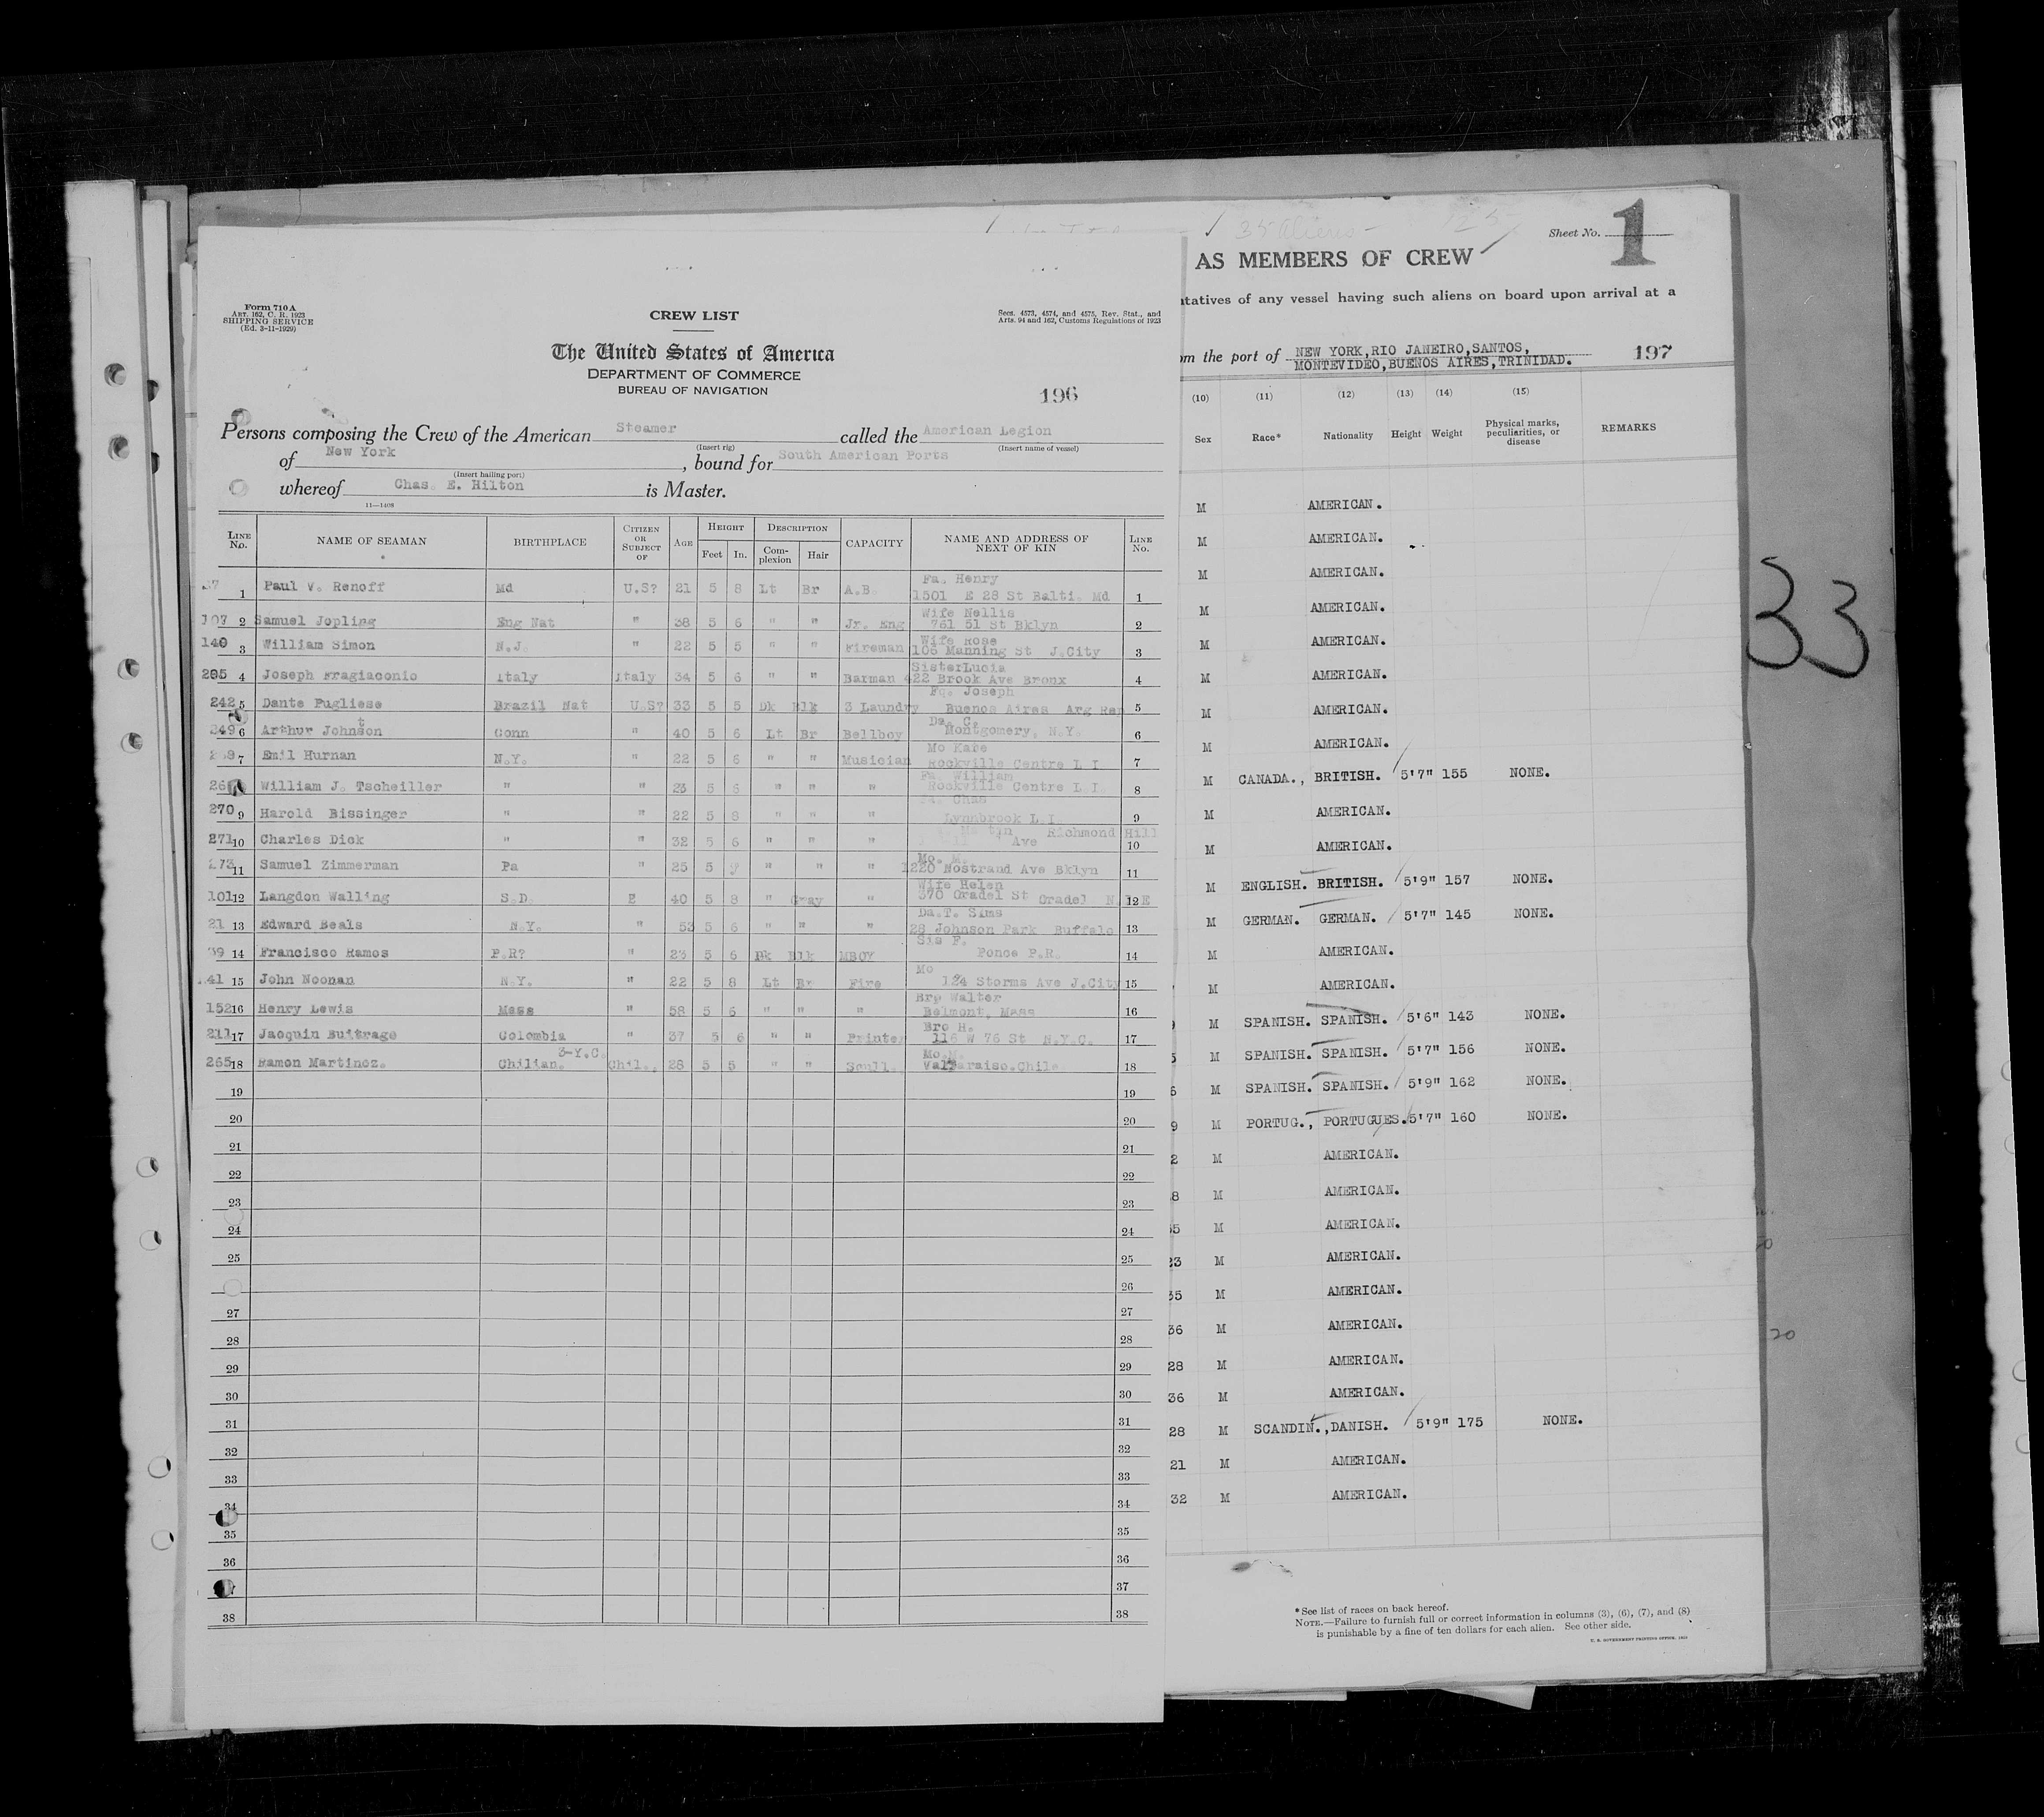 Form 710 A
ART. 162, C. R. 1923
SHIPPING SERVICE
(Ed. 3-11-1929)
CREW LIST
Secs. 4573, 4574, and 4575, Rev. Stat., and
Arts. 94 and 162, Customs Regulations of 1923
The United States of America
DEPARTMENT OF COMMERCE
BUREAU OF NAVIGATION
196
Persons composing the Crew of the American Steamer called the American Legion
(Insert rig) (Insert name of vessel)
of New York, bound for South American Ports
(Insert hailing port)
whereof Chas. E. Hilton is Master.
11—1408
LINE No. NAME OF SEAMAN BIRTHPLACE CITIZEN OR SUBJECT OF AGE HEIGHT Feet In. DESCRIPTION Complexion Hair CAPACITY NAME AND ADDRESS OF NEXT OF KIN LINE No.
1 Paul V. Renoff Md U.S? 21 5 8 Lt Br A.B. Fa. Henry 1501 E 28 St Balti. Md 1
107 2 Samuel Jopling Eng Nat " 38 5 6 " " Jr. Eng Wife Nellis 761 51 St Bklyn 2
140 3 William Simon N.J. " 22 5 5 " " Fireman Wife Rose 106 Manning St J.City 3
4 Joseph Fragiaconio Italy Italy 34 5 6 " " Barman SisterLucia 422 Brook Ave Bronx 4
242 5 Dante Pugliese Brazil Nat U.S? 33 5 5 Dk Blk 3 Laundry Joseph Buenos Aires Arg Rep 5
349 6 Arthur Johnston Conn " 40 5 6 Lt Br Bellboy Da. C. Montgomery, N.Y. 6
7 Emil Hurnan N.Y. " 22 5 6 " " Musician Mo Kate Rockville Centre L I 7
William J. Tscheiller " " 23 5 6 " " " Fa. William Rockville Centre L.I 8
270 9 Harold Bissinger " " 22 5 8 " " " Chas Lynnbrook L.I. 9
271 10 Charles Dick " " 32 5 6 " " " Richmond Hill Ave 10
273 11 Samuel Zimmerman Pa " 25 5 " " " Mo. M. 1220 Nostrand Ave Bklyn 11
101 12 Langdon Walling S.D. E 40 5 8 " Gray " Wife Helen 370 Oradel St Oradel 12
21 13 Edward Beals N.Y. " 53 5 6 " " " Da.T. Sims 28 Johnson Park Buffalo 13
39 14 Francisco Ramos P.R? " 23 5 6 Dk Blk MBOY Sis F. Ponce P.R. 14
41 15 John Noonan N.Y. " 22 5 8 Lt Br Fire Mo 124 Storms Ave J.City 15
152 16 Henry Lewis Mass " 58 5 6 " " " Bro Walter Belmont, Mass 16
211 17 Jacquin Buitrage Colombia " 37 5 6 " " Printer Bro H. 116 W 76 St N.Y.C. 17
3-Y.C.
265 18 Ramon Martinez. Chilian. Chil. 28 5 5 " " Scull. Mo.M. Valparaiso.Chile 18
19 19
20 20
21 21
22 22
23 23
24 24
25 25
26
27 27
28 28
29 29
30 30
31 31
32 32
33 33
34 34
35 35
36 36
37
38 38
35 Aliens -
Sheet No. 1
AS MEMBERS OF CREW
tatives of any vessel having such aliens on board upon arrival at a
om the port of NEW YORK,RIO JANEIRO,SANTOS,
MONTEVIDEO,BUENOS AIRES,TRINIDAD.
197
(10) (11) (12) (13) (14) (15)
Sex Race* Nationality Height Weight Physical marks, peculiarities, or disease REMARKS
M AMERICAN.
M AMERICAN.
M AMERICAN.
M AMERICAN.
M AMERICAN.
M AMERICAN.
M AMERICAN.
M AMERICAN.
M CANADA., BRITISH. 5'7" 155 NONE.
M AMERICAN.
M AMERICAN.
M ENGLISH. BRITISH. 5'9" 157 NONE.
M GERMAN. GERMAN. 5'7" 145 NONE.
M AMERICAN.
M AMERICAN.
M SPANISH. SPANISH. 5'6" 143 NONE.
5 M SPANISH. SPANISH. 5'7" 156 NONE.
6 M SPANISH. SPANISH. 5'9" 162 NONE.
9 M PORTUG., PORTUGUES. 5'7" 160 NONE.
2 M AMERICAN.
8 M AMERICAN.
5 M AMERICAN.
23 M AMERICAN.
35 M AMERICAN.
36 M AMERICAN.
28 M AMERICAN.
36 M AMERICAN.
28 M SCANDIN., DANISH. 5'9" 175 NONE.
21 M AMERICAN.
32 M AMERICAN.
*See list of races on back hereof.
NOTE.—Failure to furnish full or correct information in columns (3), (6), (7), and (8)
is punishable by a fine of ten dollars for each alien. See other side.
U. S. GOVERNMENT PRINTING OFFICE
33
20